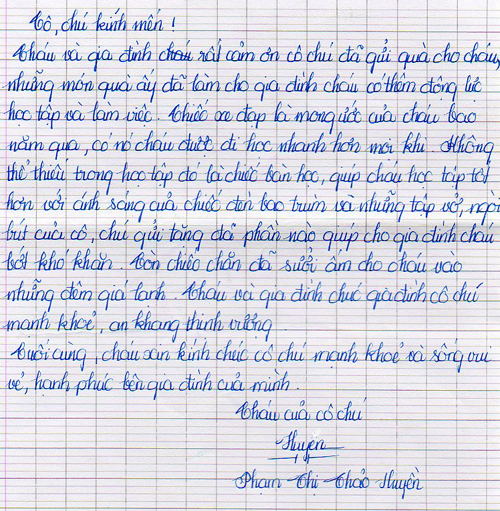 Cô, chú kính mến !
Cháu và gia đình cháu rất cảm ơn cô chú đã gửi quà cho cháu,
những món quà ấy đã làm cho gia đình cháu có thêm động lực
học tập và làm việc. Chiếc xe đạp là mong ước của cháu bao
năm qua, có nó cháu được đi học nhanh hơn mọi khi. Không
thể thiếu trong học tập đó là chiếc bàn học, giúp cháu học tập tốt
hơn với ánh sáng của chiếc đèn bao trùm và những tập vở, ngòi
bút của cô, chú gửi tặng đã phần nào giúp cho gia đình cháu
bớt khó khăn. Còn chiếc chăn đã sưởi ấm cho cháu vào
những đêm giá lạnh. Cháu và gia đình chúc gia đình cô chú
mạnh khoẻ, an khang thịnh vượng.
Cuối cùng, cháu xin kính chúc cô chú mạnh khoẻ và sống vui
vẻ, hạnh phúc bên gia đình của mình.
Cháu của cô chú
Huyền
Phạm Thị Thảo Huyền